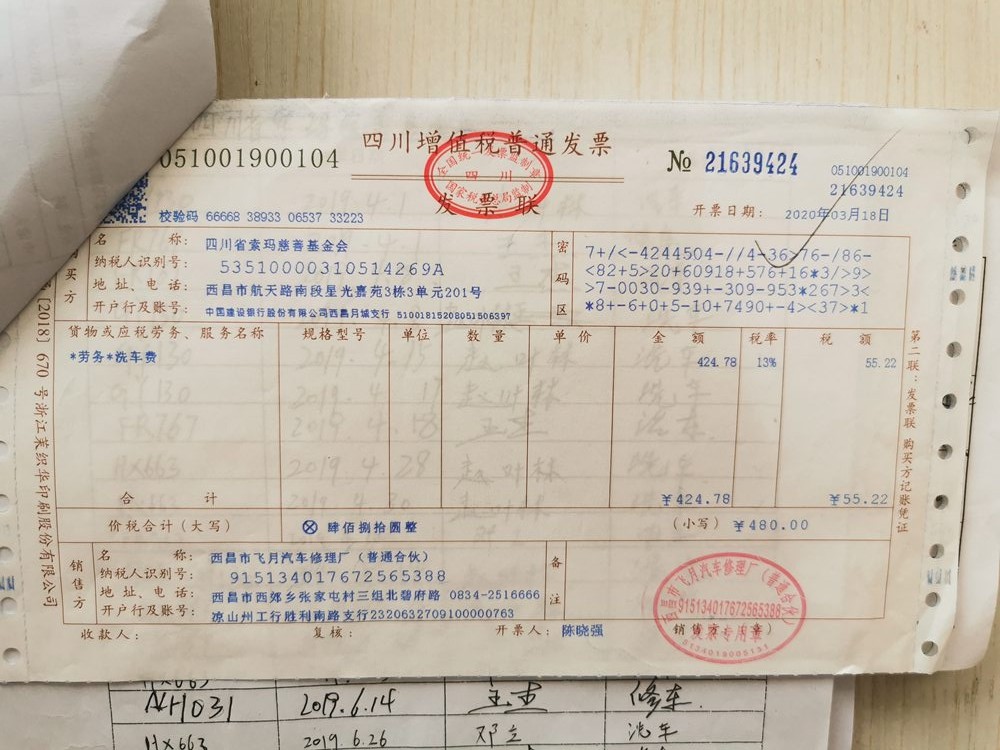 四川增值税普通发票
发票联
全国统一发票监制章
四川
国家税务总局监制
051001900104
№ 21639424
051001900104
21639424
校验码 66668 38933 06537 33223
开票日期: 2020年03月18日
购买方
名称: 四川省索玛慈善基金会
纳税人识别号: 53510000310514269A
地址、电话: 西昌市航天路南段星光嘉苑3栋3单元201号
开户行及账号: 中国建设银行股份有限公司西昌月城支行 51001815208051506397
密码区
7+/<-4244504-//4-36>76-/86-
<82+5>20+60918+576+16*3/>9>
>7-0030-939+-309-953*267>3<
*8+-6+0+5-10+7490-4><37>*1
货物或应税劳务、服务名称 规格型号 单位 数量 单价 金额 税率 税额
*劳务*洗车费 424.78 13% 55.22
合计 ¥424.78 ¥55.22
价税合计(大写) ⊗ 肆佰捌拾圆整 (小写) ¥480.00
销售方
名称: 西昌市飞月汽车修理厂(普通合伙)
纳税人识别号: 915134017672565388
地址、电话: 西昌市西郊乡张家屯村三组北碧府路 0834-2516666
开户行及账号: 凉山州工行胜利南路支行2320632709100000763
备注
收款人: 复核: 开票人: 陈晓强 销售方:(章)
西昌市飞月汽车修理厂(普通合伙)
915134017672565388
发票专用章
5134019005131
第二联:发票联 购买方记账凭证
[2018] 670号浙江莱织华印刷股份有限公司
HX663
AH031 2019.6.14 王杰 修车
HX663 2019.6.26 邓立 洗车